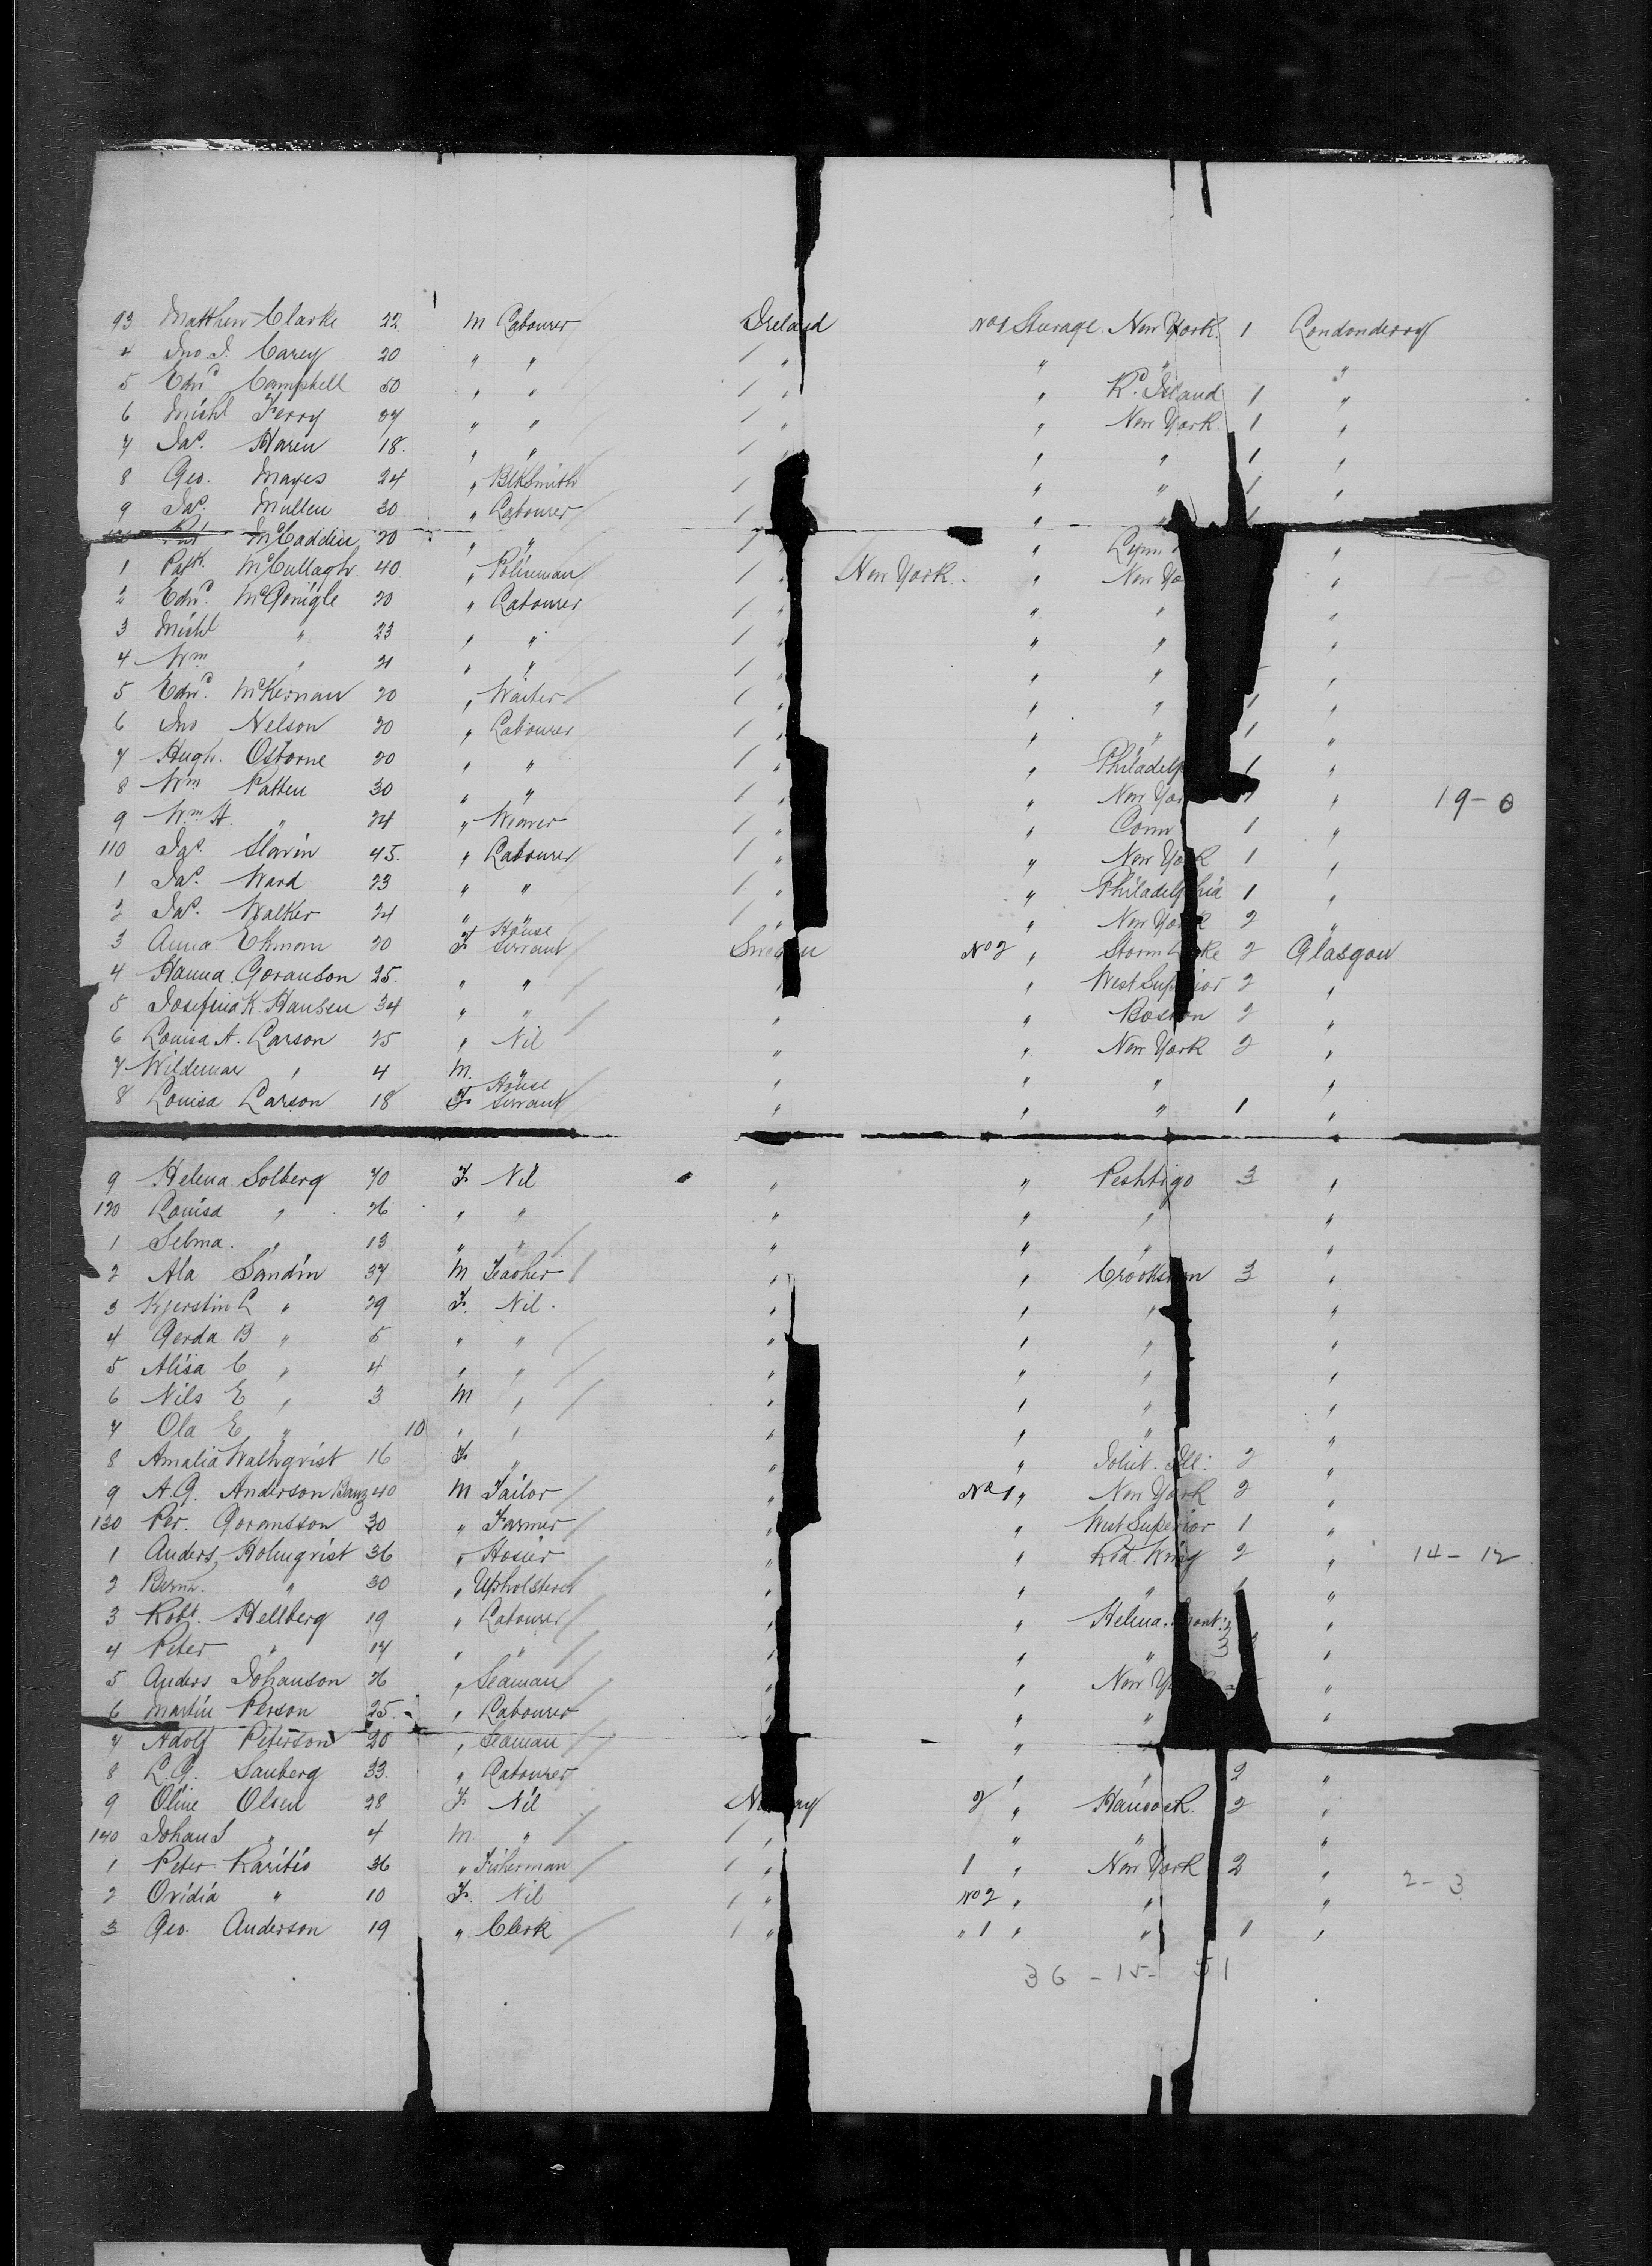 93 Matthew Clarke 22 M Labourer Ireland No 1 Steerage New York 1 Londonderry
4 Jno J. Carey 20 " " 1 " " " "
5 Edwd Campbell 50 " " 1 " " Rd. Island 1 "
6 Michl Ferry 27 " " 1 " " New York 1 "
7 Jas. Haren 18 " " 1 " " " 1 "
8 Geo. Mayes 24 " BlkSmith 1 " " " 1 "
9 Jas. Mullen 30 " Labourer 1 " " 1
McCaddin 20 " " 1 " " Lynn "
1 Patk. McCullagh 40 " Policeman 1 " New York " New Yo "
2 Edwd. McGonigle 20 " Labourer 1 " " " "
3 Michl " 23 " " 1 " " " "
4 Wm " 21 " " 1 " " " "
5 Edwd. McKernan 20 " Waiter 1 " " " 1 "
6 Jno Nelson 20 " Labourer 1 " " " 1 "
7 Hugh Osborne 20 " " 1 " " Philadelp 1 "
8 Wm Patten 30 " " 1 " " New Yor 1 " 19-0
9 Wm. A. " 24 " Weaver 1 " " Conn 1 "
110 Jas. Slavin 45 " Labourer 1 " " New York 1 "
1 Jas. Ward 23 " " 1 " " Philadelphia 1 "
2 Jas. Walker 24 " " 1 " " New York 2 "
3 Anna Ekmom 20 F House Servant Sweden No 2 " Storm Lake 2 Glasgow
4 Hanna Goranson 25 " " " " West Superior 2 "
5 Josefina K. Hansen 34 " " " " Boston 2 "
6 Louisa A. Larson 25 " Nil " " New York 2 "
7 Wildemar " 4 M. " " " " "
8 Louisa Larson 18 F House Servant " " " 1 "
9 Helena Solberg 70 F Nil " " Peshtigo 3 "
120 Louisa " 26 " " " " " "
1 Selma " 13 " " " " " "
2 Ala Sandin 37 M Teacher " " Crookston 3 "
3 Kjerstin L " 29 F. Nil " " " "
4 Gerda B " 5 " " " " " "
5 Alisa C " 4 " " " " " "
6 Nils E " 3 M " " " " "
7 Ola E " 10 " " " " " "
8 Amalia Walhqvist 16 F " " " Joliet. Ill: 2 "
9 A.G. Anderson 40 M Tailor " No 1 " New York 2 "
130 Per. Goransson 30 " Farmer " " West Superior 1 "
1 Anders Holmqvist 36 " Hosier " " Red Wing 2 " 14-12
2 Bernh. " 30 " Upholsterer " " " "
3 Robt. Hellberg 19 " Labourer " " Helena. Mont: 3 "
4 Peter " 17 " " " " " 3 "
5 Anders Johanson 26 " Seaman " " New Yo "
6 Martin Person 25 " Labourer " " " "
7 Adolf Peterson 20 " Seaman " "
8 L.G. Sauberg 33 " Labourer " " 2 "
9 Oline Olsen 28 F Nil Norway 2 " Hancock. 2 "
140 Johan S " 4 M " 1 " " " "
1 Peter Karitis 36 " Fisherman 1 " 1 " New York 2 "
2 Ovidia " 10 F. Nil 1 " No 2 " " " 2-3
3 Geo. Anderson 19 " Clerk 1 " " 1 " " 1 "
36 - 15 - 51